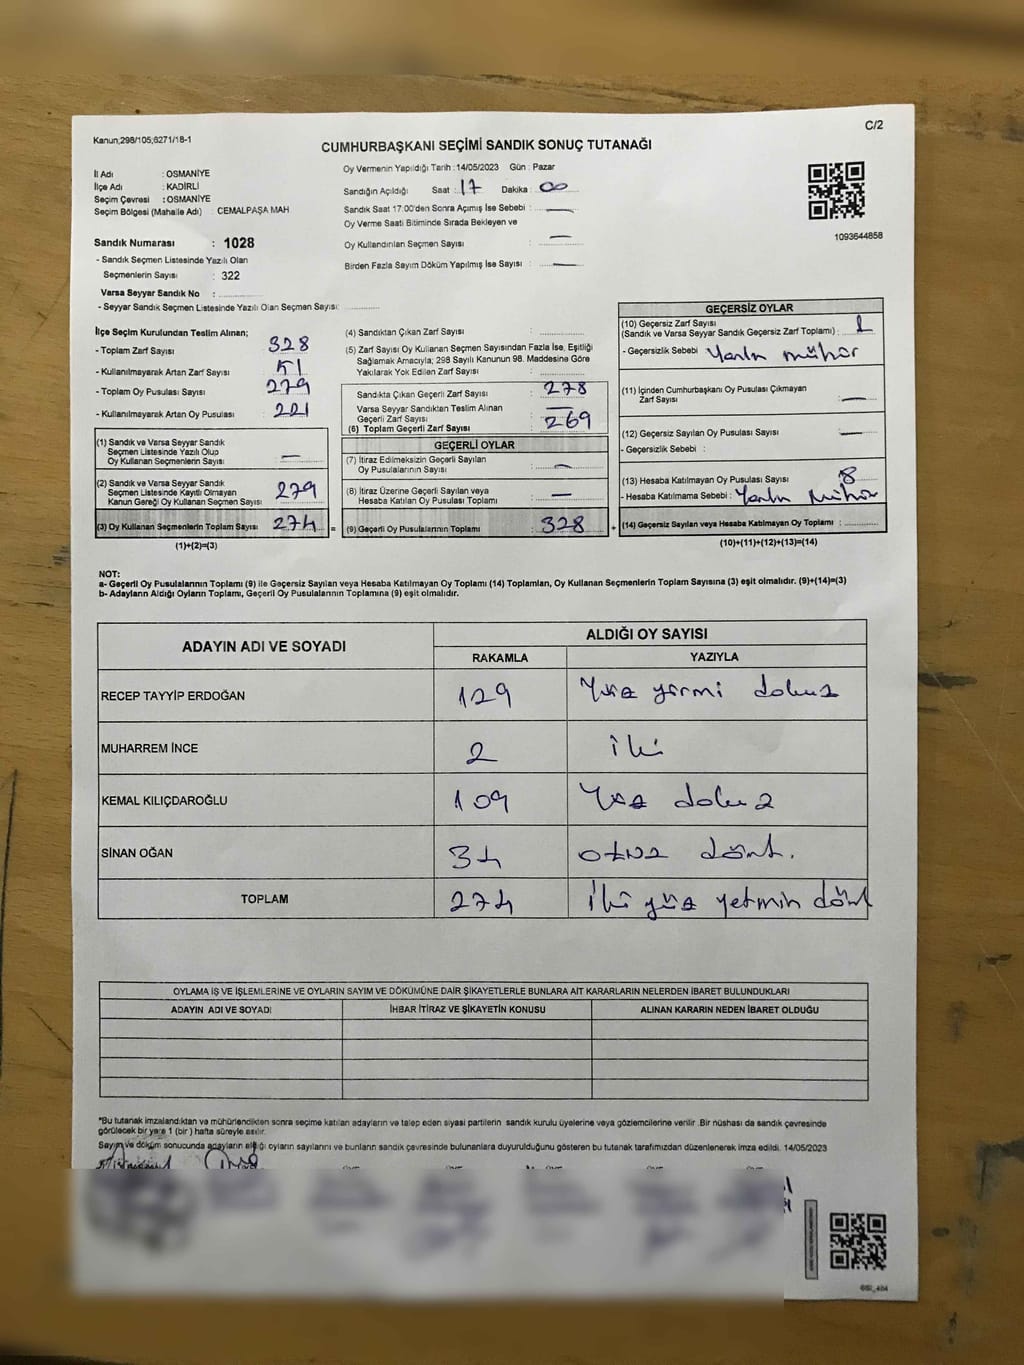 Kanun,298/105;6271/18-1
C/2
CUMHURBAŞKANI SEÇİMİ SANDIK SONUÇ TUTANAĞI
İl Adı : OSMANİYE
İlçe Adı : KADİRLİ
Seçim Çevresi : OSMANİYE
Seçim Bölgesi (Mahalle Adı) : CEMALPAŞA MAH
Sandık Numarası : 1028
- Sandık Seçmen Listesinde Yazılı Olan
Seçmenlerin Sayısı : 322
Varsa Seyyar Sandık No :
- Seyyar Sandık Seçmen Listesinde Yazılı Olan Seçmen Sayısı:
Oy Vermenin Yapıldığı Tarih : 14/05/2023 Gün : Pazar
Sandığın Açıldığı Saat : 17 Dakika : 00
Sandık Saat 17:00'den Sonra Açımış İse Sebebi : —
Oy Verme Saati Bitiminde Sırada Bekleyen ve
Oy Kullandırılan Seçmen Sayısı : —
Birden Fazla Sayım Döküm Yapılmış İse Sayısı : —
1093644858
İlçe Seçim Kurulundan Teslim Alınan;
- Toplam Zarf Sayısı : 328
- Kullanılmayarak Artan Zarf Sayısı :
- Toplam Oy Pusulası Sayısı : 279
- Kullanılmayarak Artan Oy Pusulası : 221
(1) Sandık ve Varsa Seyyar Sandık
Seçmen Listesinde Yazılı Olup
Oy Kullanan Seçmenlerin Sayısı : —
(2) Sandık ve Varsa Seyyar Sandık
Seçmen Listesinde Kayıtlı Olmayan
Kanun Gereği Oy Kullanan Seçmen Sayısı : 279
(3) Oy Kullanan Seçmenlerin Toplam Sayısı : 274 =
(1)+(2)=(3)
(4) Sandıktan Çıkan Zarf Sayısı :
(5) Zarf Sayısı Oy Kullanan Seçmen Sayısından Fazla İse, Eşitliği
Sağlamak Amacıyla; 298 Sayılı Kanunun 98. Maddesine Göre
Yakılarak Yok Edilen Zarf Sayısı :
Sandıkta Çıkan Geçerli Zarf Sayısı : 278
Varsa Seyyar Sandıktan Teslim Alınan
Geçerli Zarf Sayısı : —
(6) Toplam Geçerli Zarf Sayısı : 269
GEÇERLİ OYLAR
(7) İtiraz Edilmeksizin Geçerli Sayılan
Oy Pusulalarının Sayısı : —
(8) İtiraz Üzerine Geçerli Sayılan veya
Hesaba Katılan Oy Pusulası Toplamı : —
(9) Geçerli Oy Pusulalarının Toplamı : 328 +
GEÇERSİZ OYLAR
(10) Geçersiz Zarf Sayısı
(Sandık ve Varsa Seyyar Sandık Geçersiz Zarf Toplamı) : 1
- Geçersizlik Sebebi : Yanlış mühür
(11) İçinden Cumhurbaşkanı Oy Pusulası Çıkmayan
Zarf Sayısı : —
(12) Geçersiz Sayılan Oy Pusulası Sayısı : —
- Geçersizlik Sebebi :
(13) Hesaba Katılmayan Oy Pusulası Sayısı : 8
- Hesaba Katılmama Sebebi : Yanlış Mühür
(14) Geçersiz Sayılan veya Hesaba Katılmayan Oy Toplamı :
(10)+(11)+(12)+(13)=(14)
NOT:
a- Geçerli Oy Pusulalarının Toplamı (9) ile Geçersiz Sayılan veya Hesaba Katılmayan Oy Toplamı (14) Toplamları, Oy Kullanan Seçmenlerin Toplam Sayısına (3) eşit olmalıdır. (9)+(14)=(3)
b- Adayların Aldığı Oyların Toplamı, Geçerli Oy Pusulalarının Toplamına (9) eşit olmalıdır.
ADAYIN ADI VE SOYADI ALDIĞI OY SAYISI
RAKAMLA YAZIYLA
RECEP TAYYİP ERDOĞAN 129 Yüz yirmi dokuz
MUHARREM İNCE 2 iki
KEMAL KILIÇDAROĞLU 109 Yüz dokuz
SİNAN OĞAN 34 otuz dört.
TOPLAM 274 İki yüz yetmiş dört
OYLAMA İŞ VE İŞLEMLERİNE VE OYLARIN SAYIM VE DÖKÜMÜNE DAİR ŞİKAYETLERLE BUNLARA AİT KARARLARIN NELERDEN İBARET BULUNDUKLARI
ADAYIN ADI VE SOYADI İHBAR İTİRAZ VE ŞİKAYETİN KONUSU ALINAN KARARIN NEDEN İBARET OLDUĞU
*Bu tutanak imzalandıktan ve mühürlendikten sonra seçime katılan adayların ve talep eden siyasi partilerin sandık kurulu üyelerine veya gözlemcilerine verilir .Bir nüshası da sandık çevresinde
görülecek bir yere 1 (bir ) hafta süreyle asılır.
Sayım ve döküm sonucunda adayların aldığı oyların sayılarını ve bunların sandık çevresinde bulunanlara duyurulduğunu gösteren bu tutanak tarafımızdan düzenlenerek imza edildi. 14/05/2023